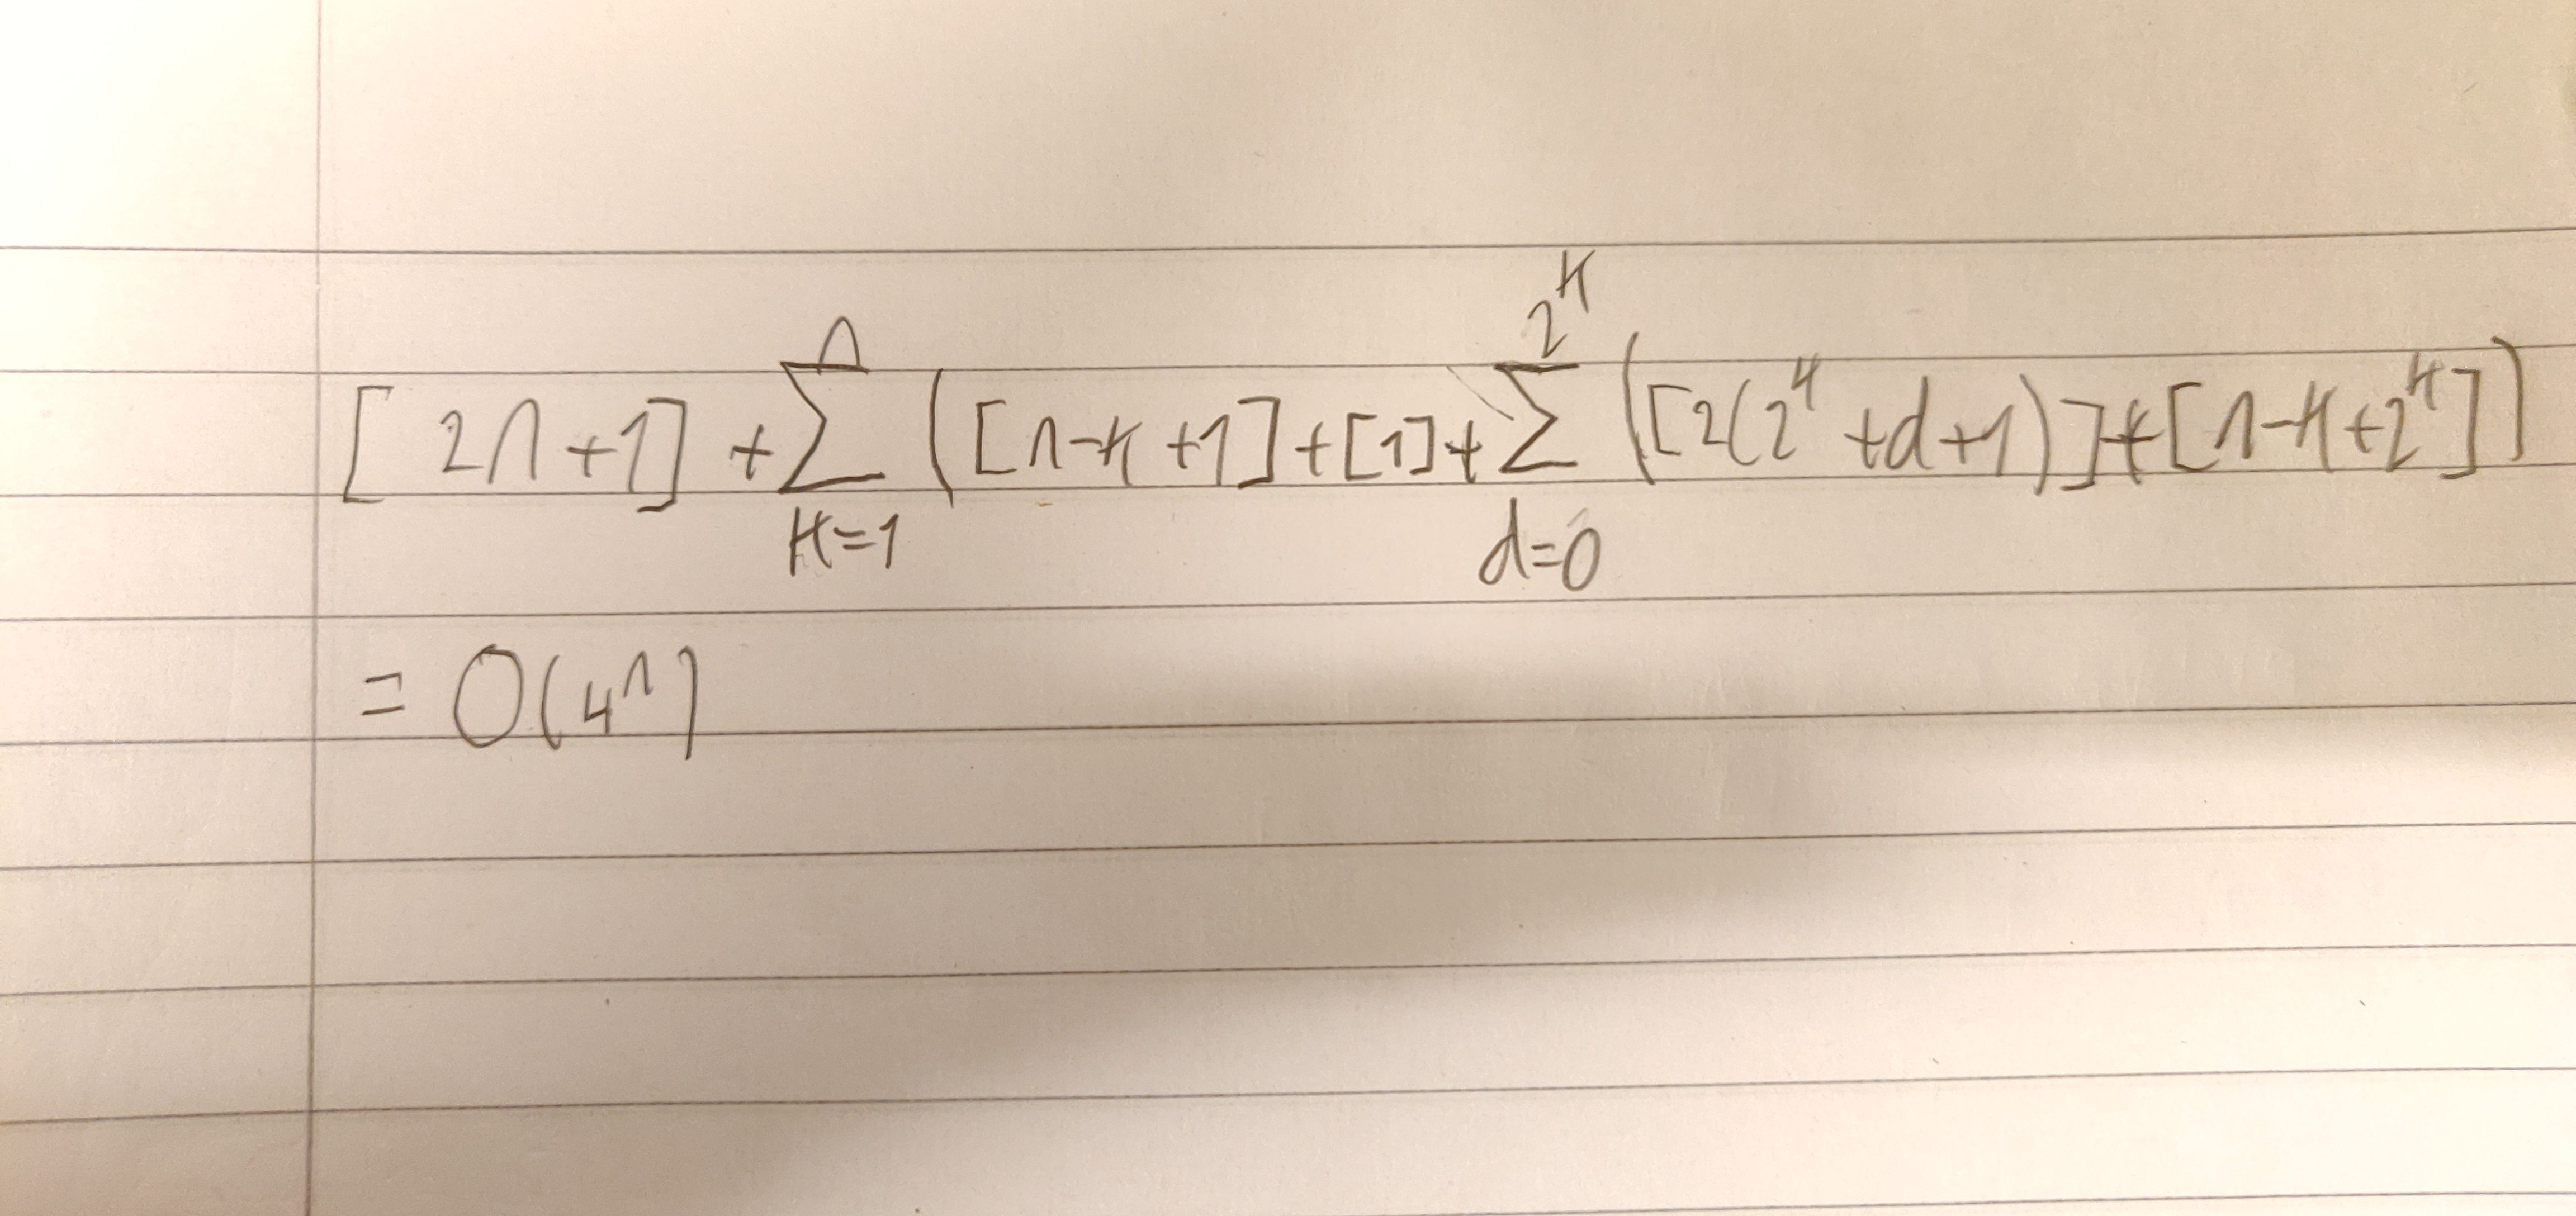 [2n+1] + \sum_{k=1}^{n} ([n-k+1]+[1]+\sum_{d=0}^{2^k} ([2(2^k+d+1)]+[n-k+2^k])
= O(4^n)